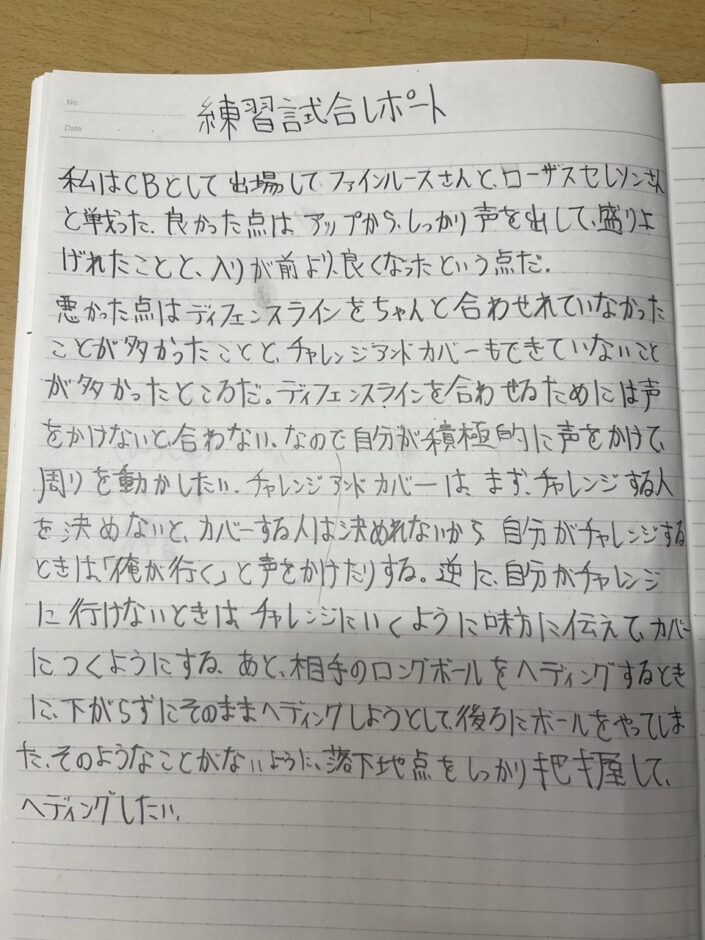 No.
Date
練習試合レポート
私はCBとして出場して、ファインルースさんと、ローザスセレソンさん
と戦った。良かった点は アップから、しっかり声を出して、盛りよ
げれたことと、入りが前より、良くなったという点だ。
悪かった点はディフェンスラインをちゃんと合わせれていなかった
ことが多かったことと、チャレンジアンドカバーもできていないこと
が多かったところだ。ディフェンスラインを合わせるためには声
をかけないと、合わない。なので自分が積極的に声をかけて、
周りを動かしたい。チャレンジアンドカバーは、まず、チャレンジする人
を決めないと、カバーする人は決めれないから 自分がチャレンジする
ときは、「俺が行く」と声をかけたりする。逆に、自分がチャレンジ
に行けないときは、チャレンジにいくように味方に伝えて、カバー
につくようにする。あと、相手のロングボールをヘディングするとき
に、下がらずにそのままヘディングしようとして、後ろにボールをやってしま
た、そのようなことがないように、落下地点をしっかり把握して、
ヘディングしたい。